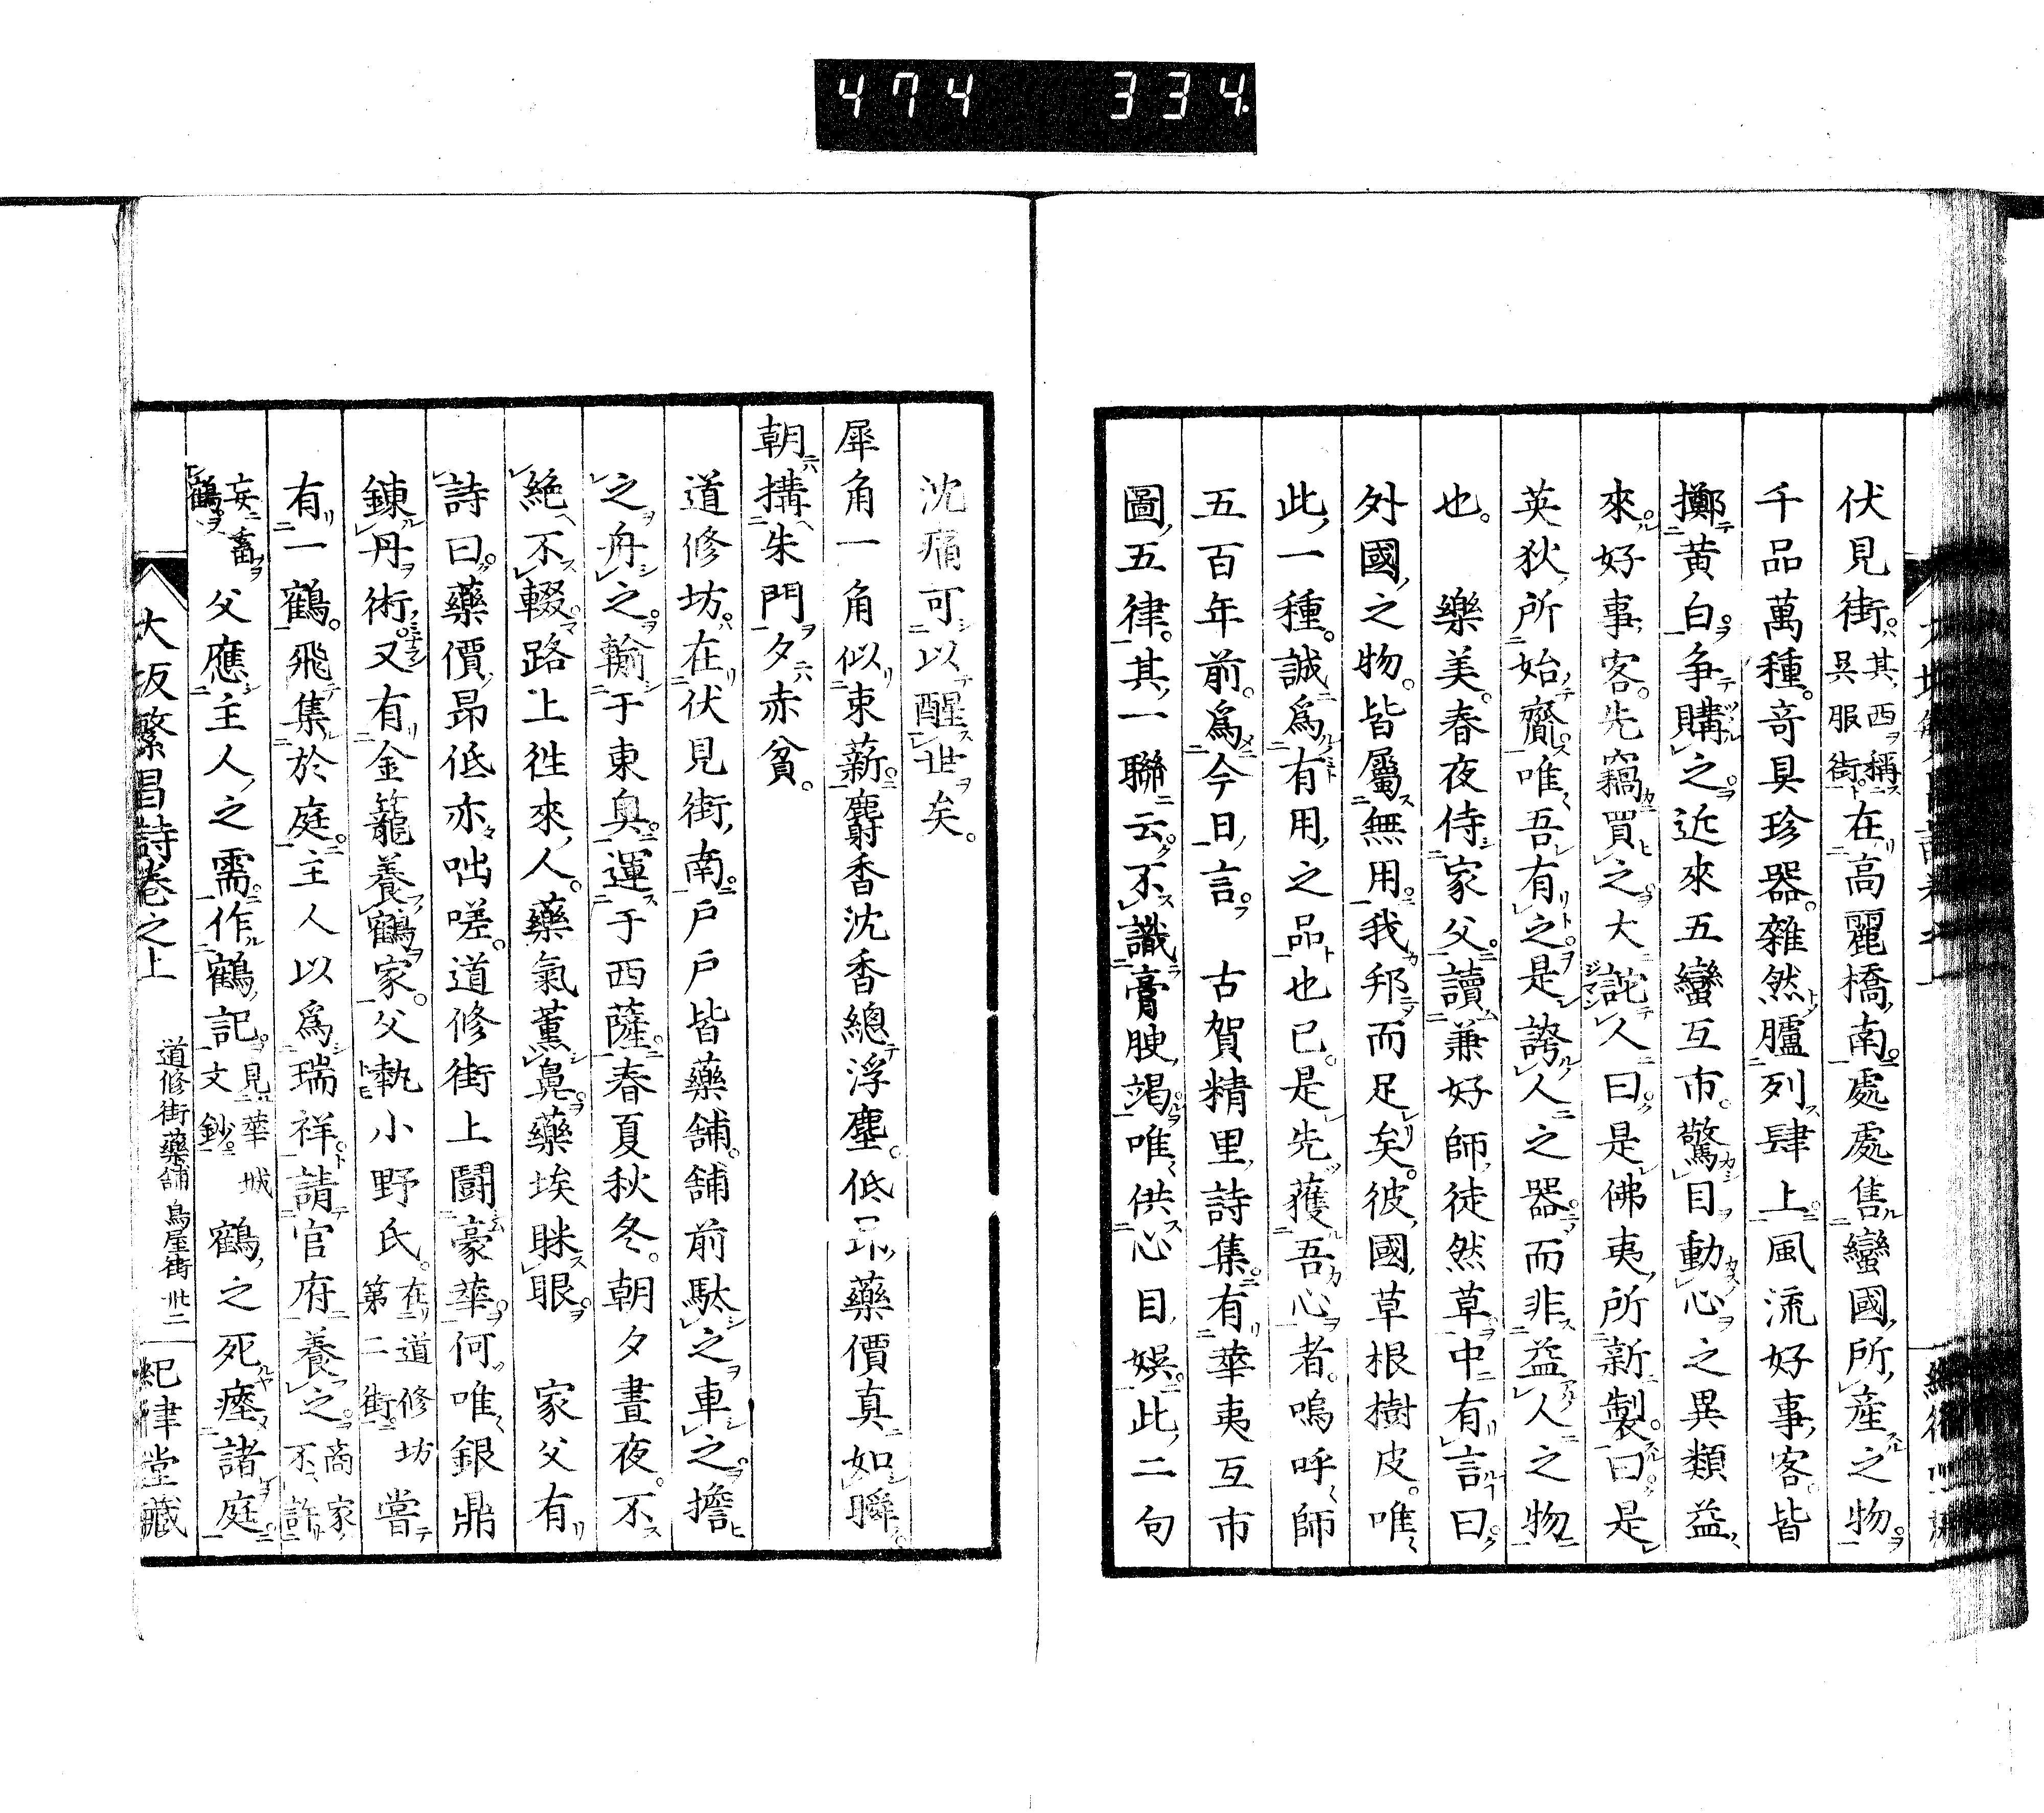 474 334
伏見街。其西稱吳服街。在高麗橋南。處處售蠻國所產之物。
千品萬種。奇具珍器。雜然臚列肆上。風流好事客。皆
擲黄白。争購之。近來五蠻互市。驚目動心之異類益
來。好事客。先竊買之。大詫人曰。是佛夷所新製。曰是
英狄所始齎。唯吾有之。是誇人之器。而非益人之物
也。 樂美。春夜侍家父。讀兼好師徒然草。中有言曰。
外國之物。皆屬無用。我邦而足矣。彼國草根樹皮。唯
此一種。誠爲有用之品也已。是先獲吾心者。嗚呼師
五百年前。爲今日言。 古賀精里詩集。有華夷互市
圖五律。其一聯云。不識膏腴竭。唯供心目娯。此二句
沈痛可以醒世矣。
犀角一角似束薪。麝香沈香總浮塵。低昻藥價真如瞬。
朝搆朱門夕赤貧。
道修坊。在伏見街南。戶戶皆藥舗。舗前駄之車之。擔
之舟之。輸于東奥。運于西薩。春夏秋冬。朝夕晝夜。不
絶不輟。路上徃來人。藥氣薰鼻。藥埃眯眼。 家父有
詩曰。藥價昻低亦咄嗟。道修街上鬭豪華。何唯銀鼎
鍊丹術。又有金籠養鶴家。父執小野氏。在道修坊第二街。嘗
有一鶴。飛集於庭。主人以爲瑞祥。請官府養之。商家不許
妄畜鶴 父應主人之需。作鶴記。見華城文鈔。 鶴之死瘞諸庭
大坂繁昌詩卷之上 道修街藥舗 鳥屋街 卅二 紀律堂藏